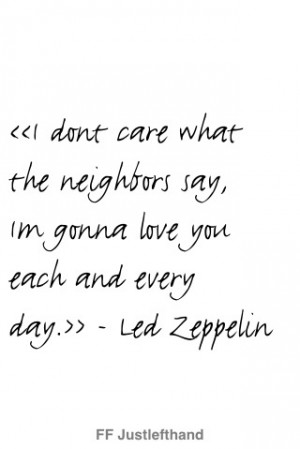 <<I dont care what
the neighbors say,
Im gonna love you
each and every
day.>> - Led Zeppelin
FF Justlefthand